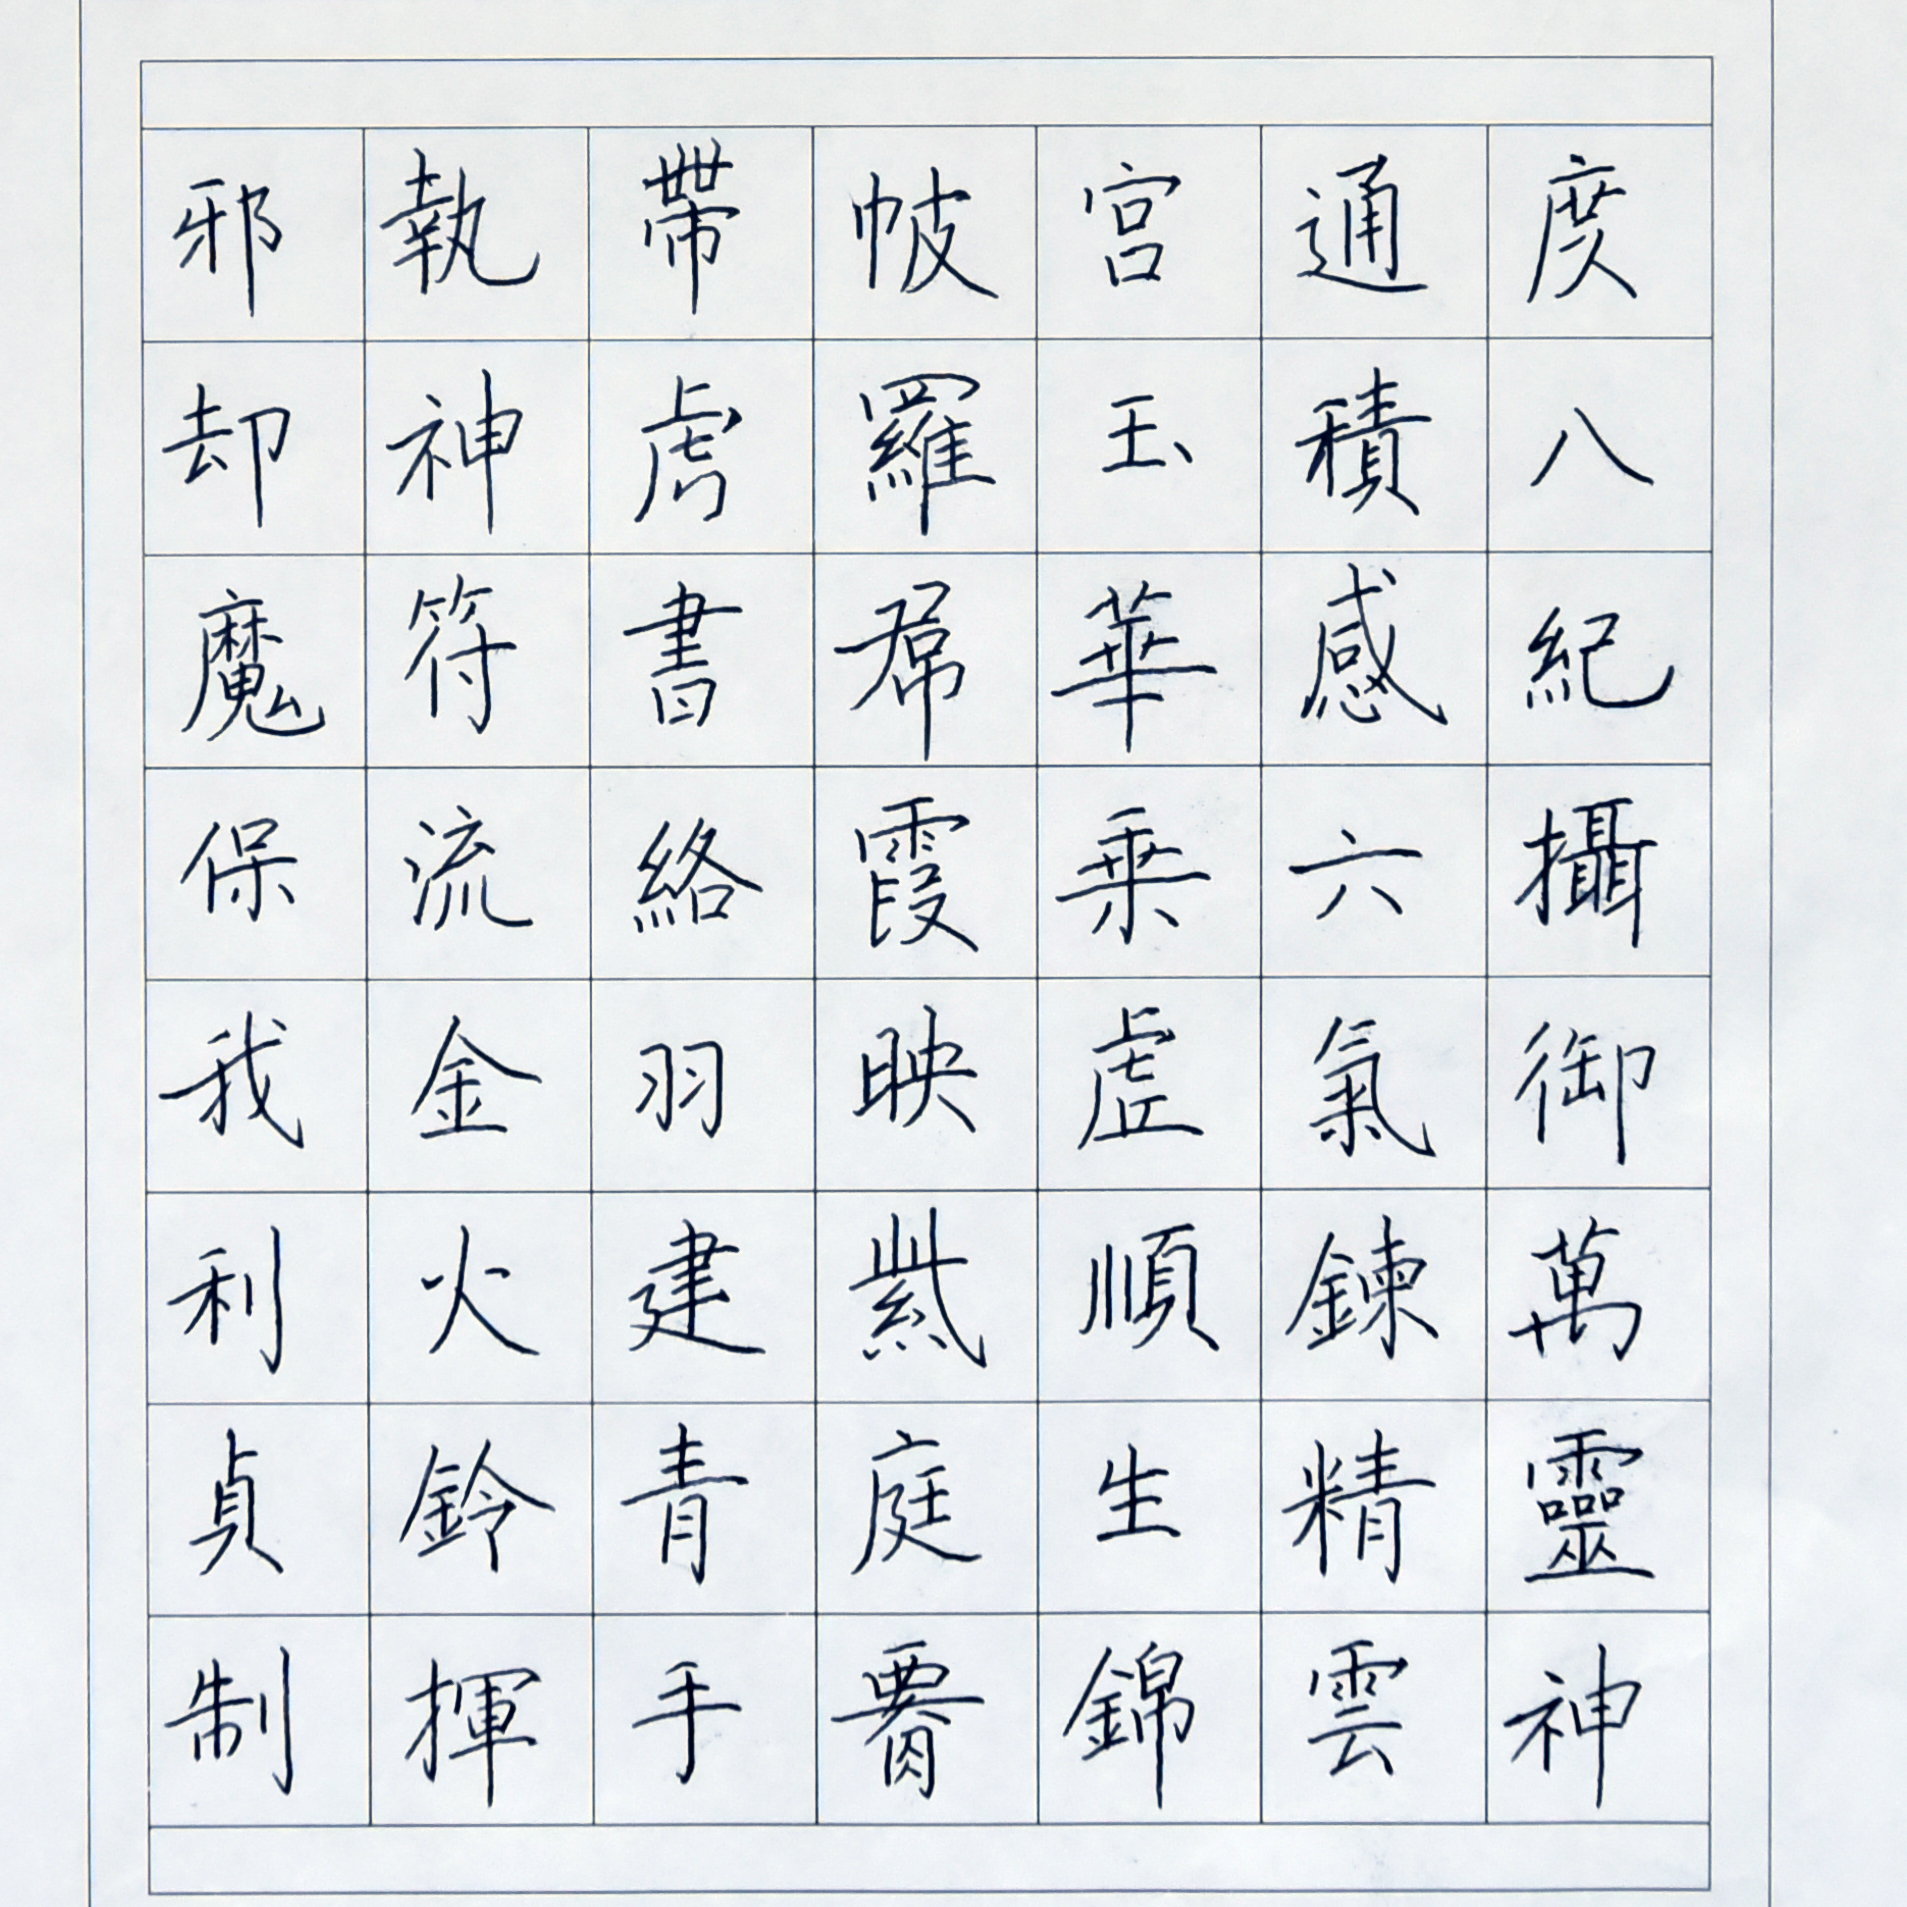 度八紀攝御萬靈神
通積感六氣鍊精雲
宮玉華乗虛順生錦
帔羅帬霞映紫庭腰
帶虎書絡羽建青手
執神符流金火鈴揮
邪却魔保我利貞制